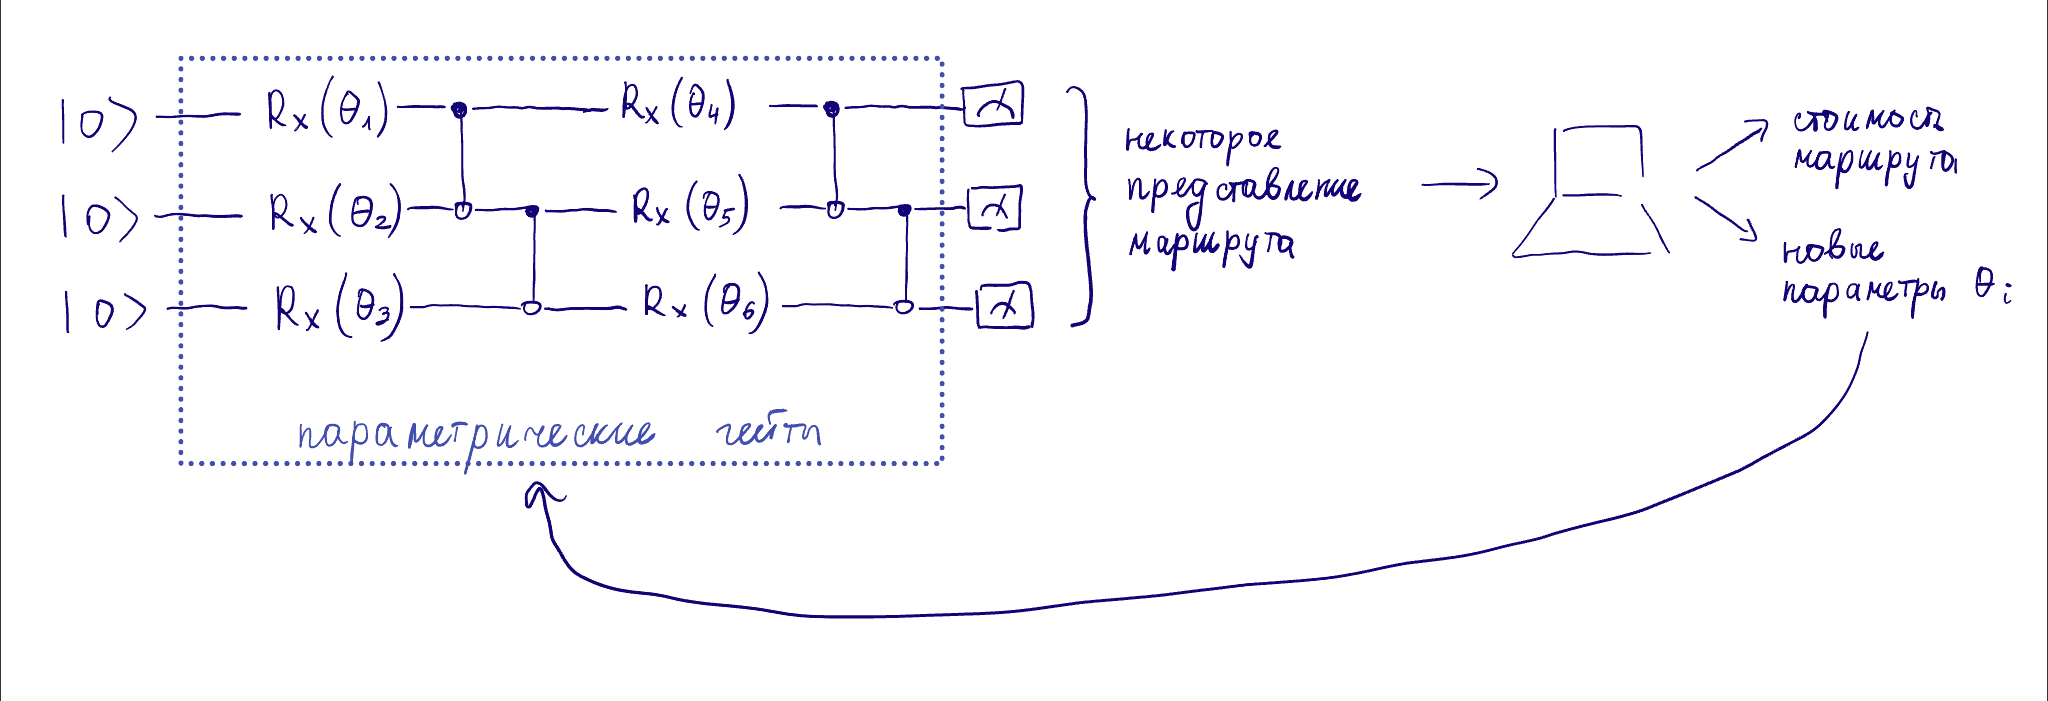 |0⟩ Rx(θ1) Rx(θ4)
|0⟩ Rx(θ2) Rx(θ5)
|0⟩ Rx(θ3) Rx(θ6)
параметрические гейты
некоторое
представление
маршрута
стоимость
маршрута
новые
параметры θi